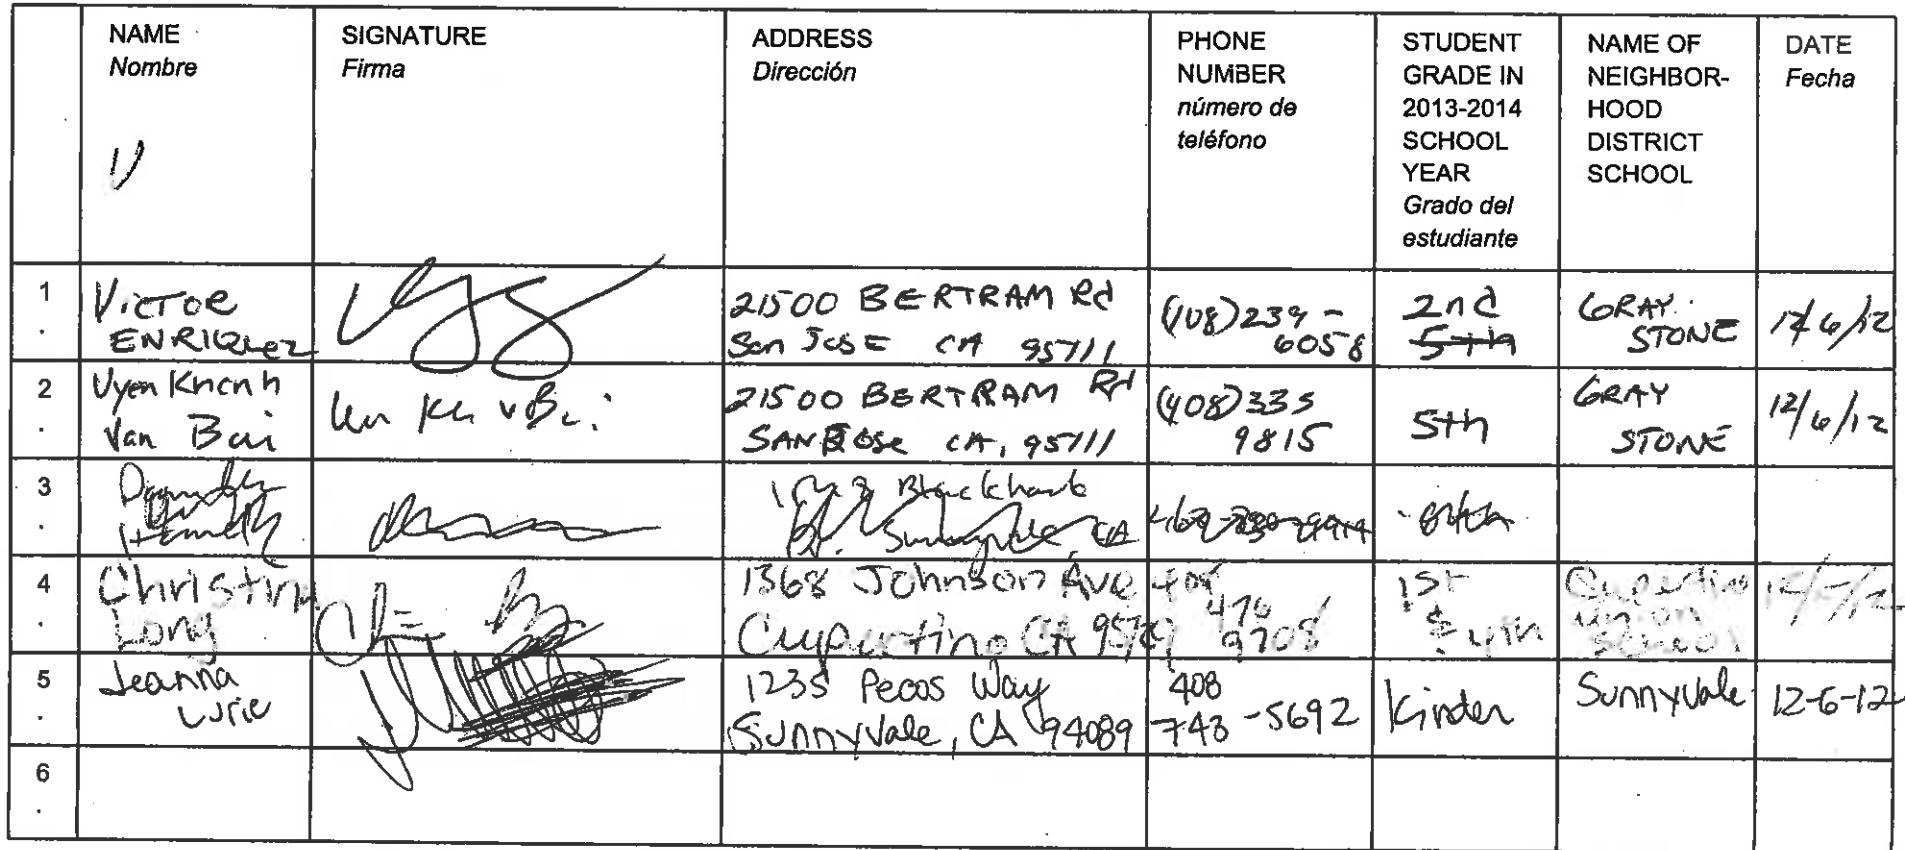 NAME
Nombre
SIGNATURE
Firma
ADDRESS
Dirección
PHONE
NUMBER
número de
teléfono
STUDENT
GRADE IN
2013-2014
SCHOOL
YEAR
Grado del
estudiante
NAME OF
NEIGHBOR-
HOOD
DISTRICT
SCHOOL
DATE
Fecha
1.
VICTOR
ENRIQUEZ
21500 BERTRAM Rd
San JOSE CA 95111
(408)239-
6058
2nd
5th
GRAY
STONE
12/6/12
2.
Uyen Khanh
Van Bui
21500 BERTRAM Rd
SAN JOSE CA, 95111
(408)335
9815
5th
GRAY
STONE
12/6/12
3.
Blackhawk
Sunnyvale CA
4.
Christina
Long
1368 Johnson Ave
Cupertino CA
408
476
9708
1st
& 4th
Cupertino
union
school
5.
Jeanna
1235 Pecos Way
Sunnyvale, CA 94089
408
743-5692
Kinder
Sunnyvale
12-6-12
6.